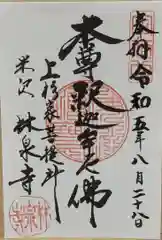 奉拝 令和五年八月二十八日
本尊 釈迦牟尼佛
上杉家菩提所
米沢 林泉寺